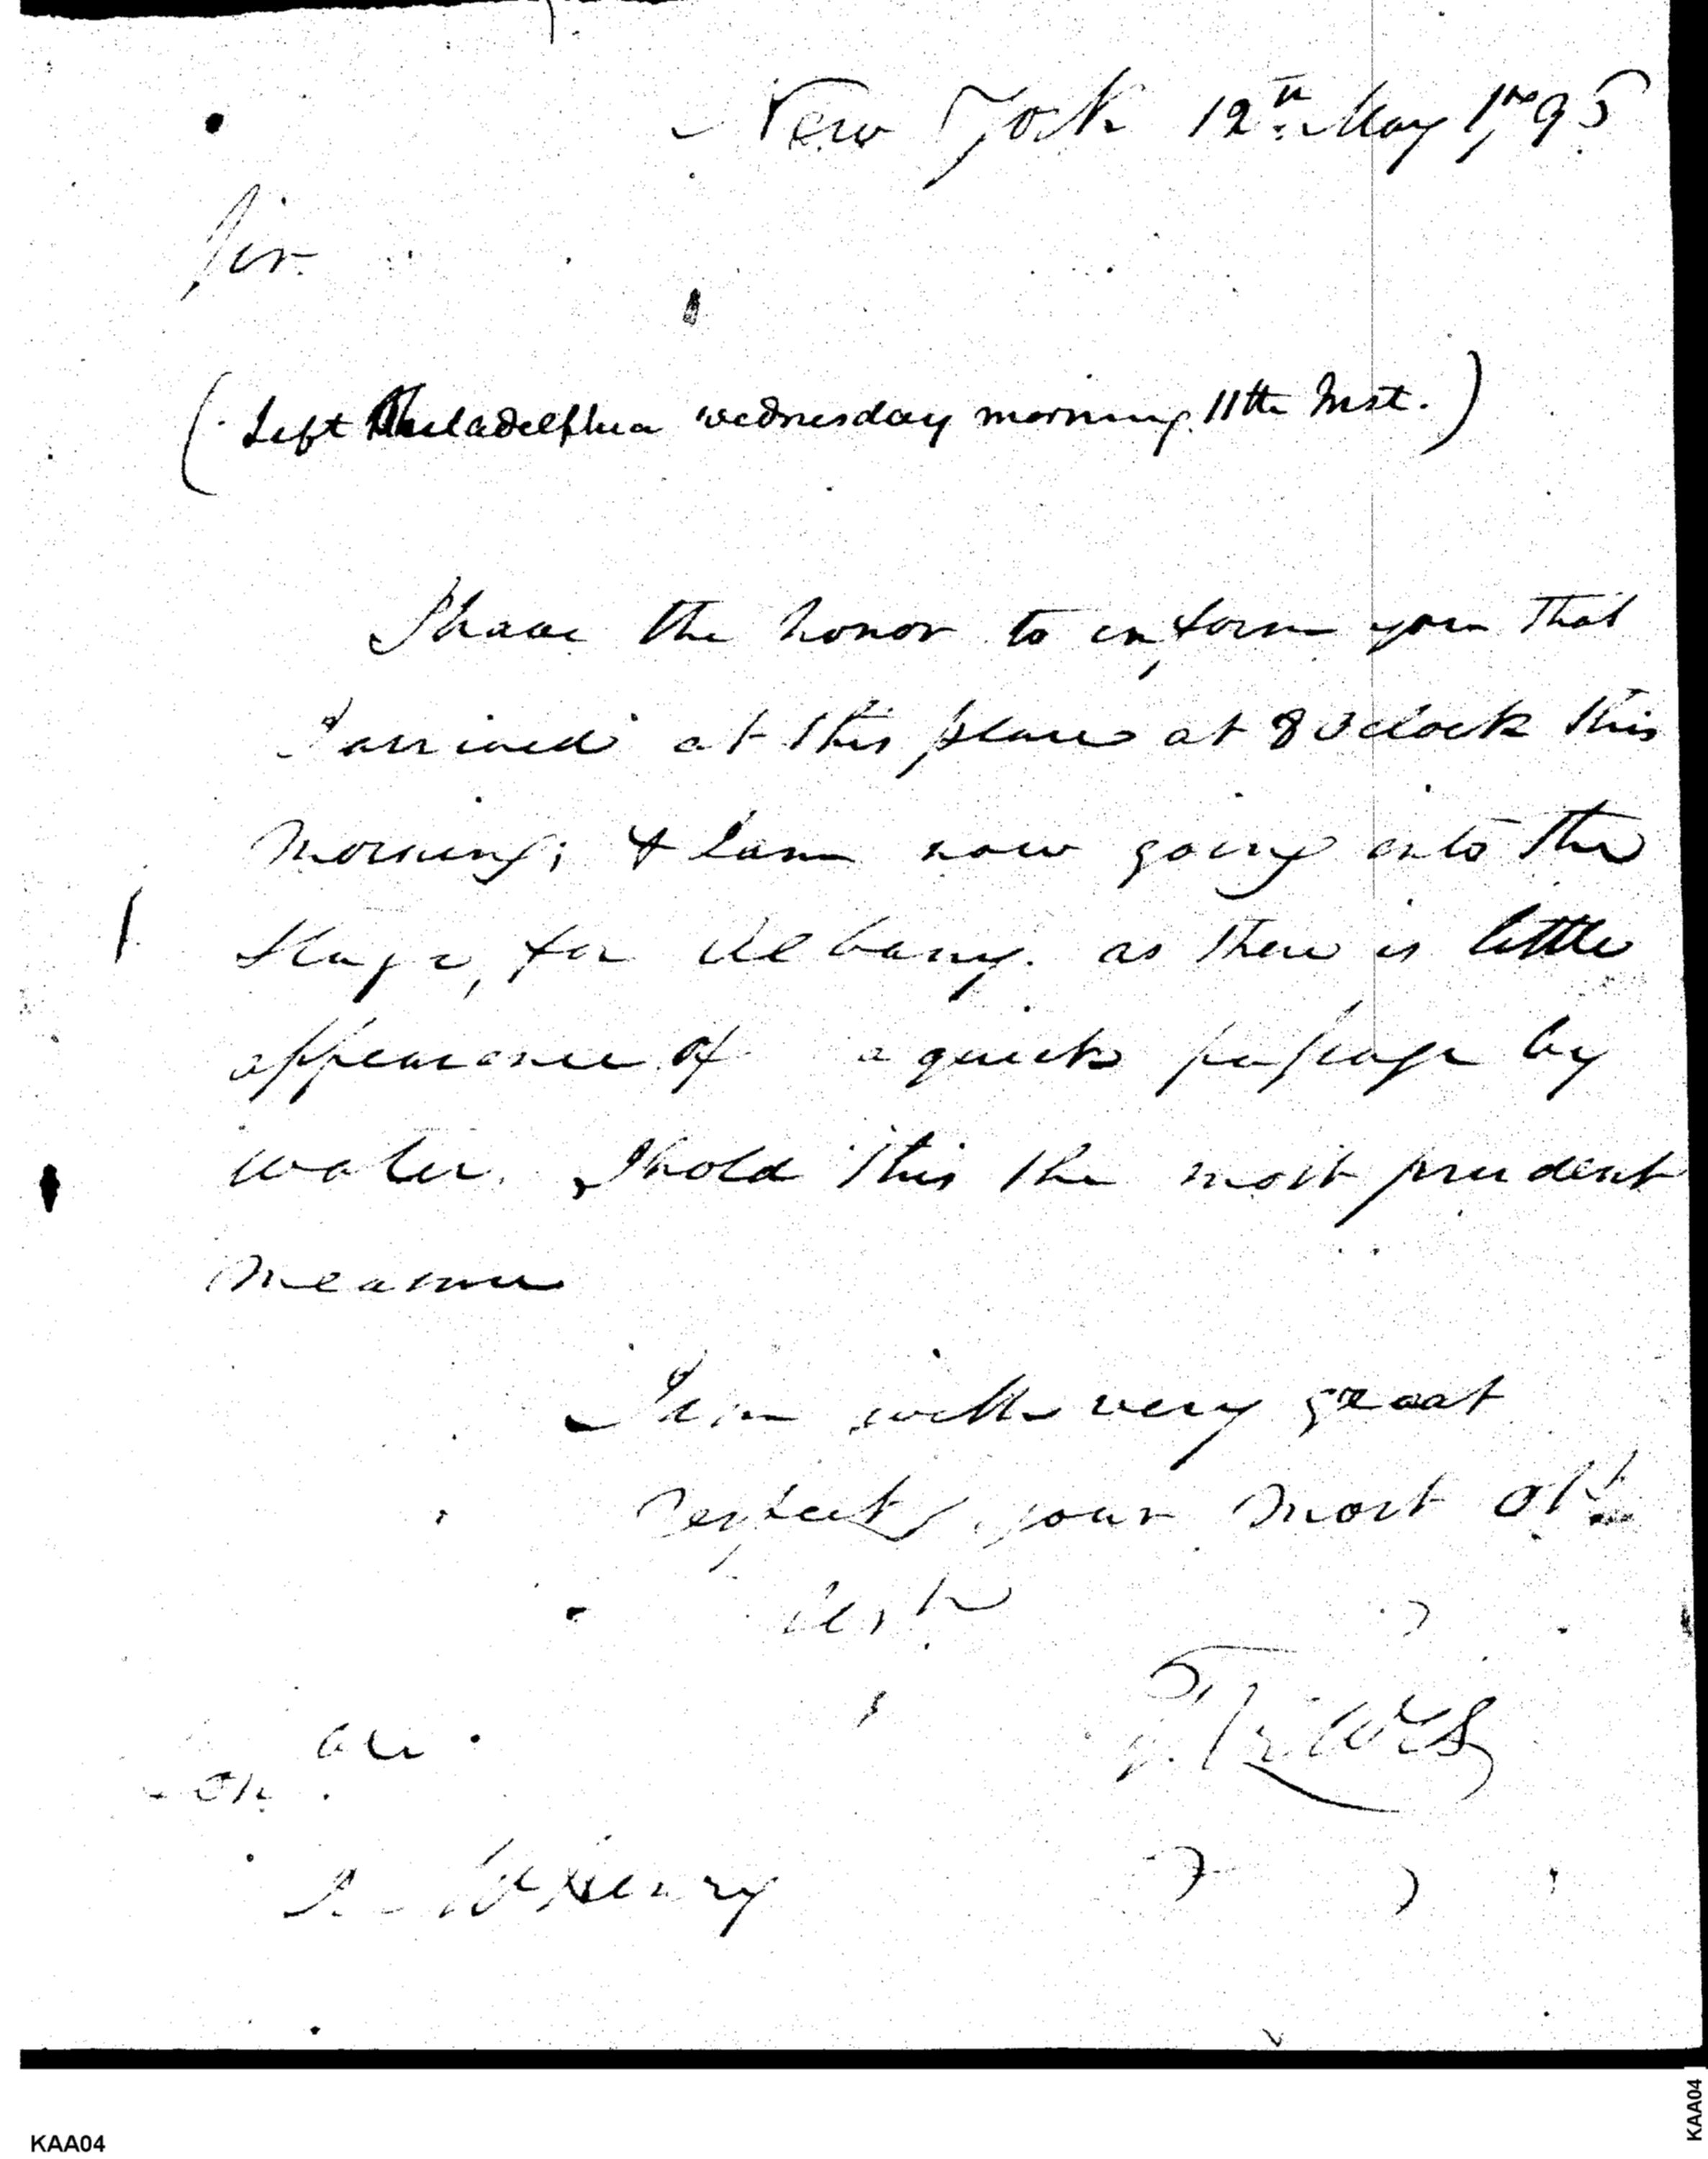 New York 12th May 1795
Sir
(Left Philadelphia wednesday morning 11th Inst.)
I have the honor to inform you that
I arrived at this place at 8 oClock this
morning; & I am now going into the
Stage, for Albany. as there is little
appearance of a quick passage by
water. I hold this the most prudent
measure
I am with very great
respect, your most obt
Lewis
McHenry
KAA04
KAA04